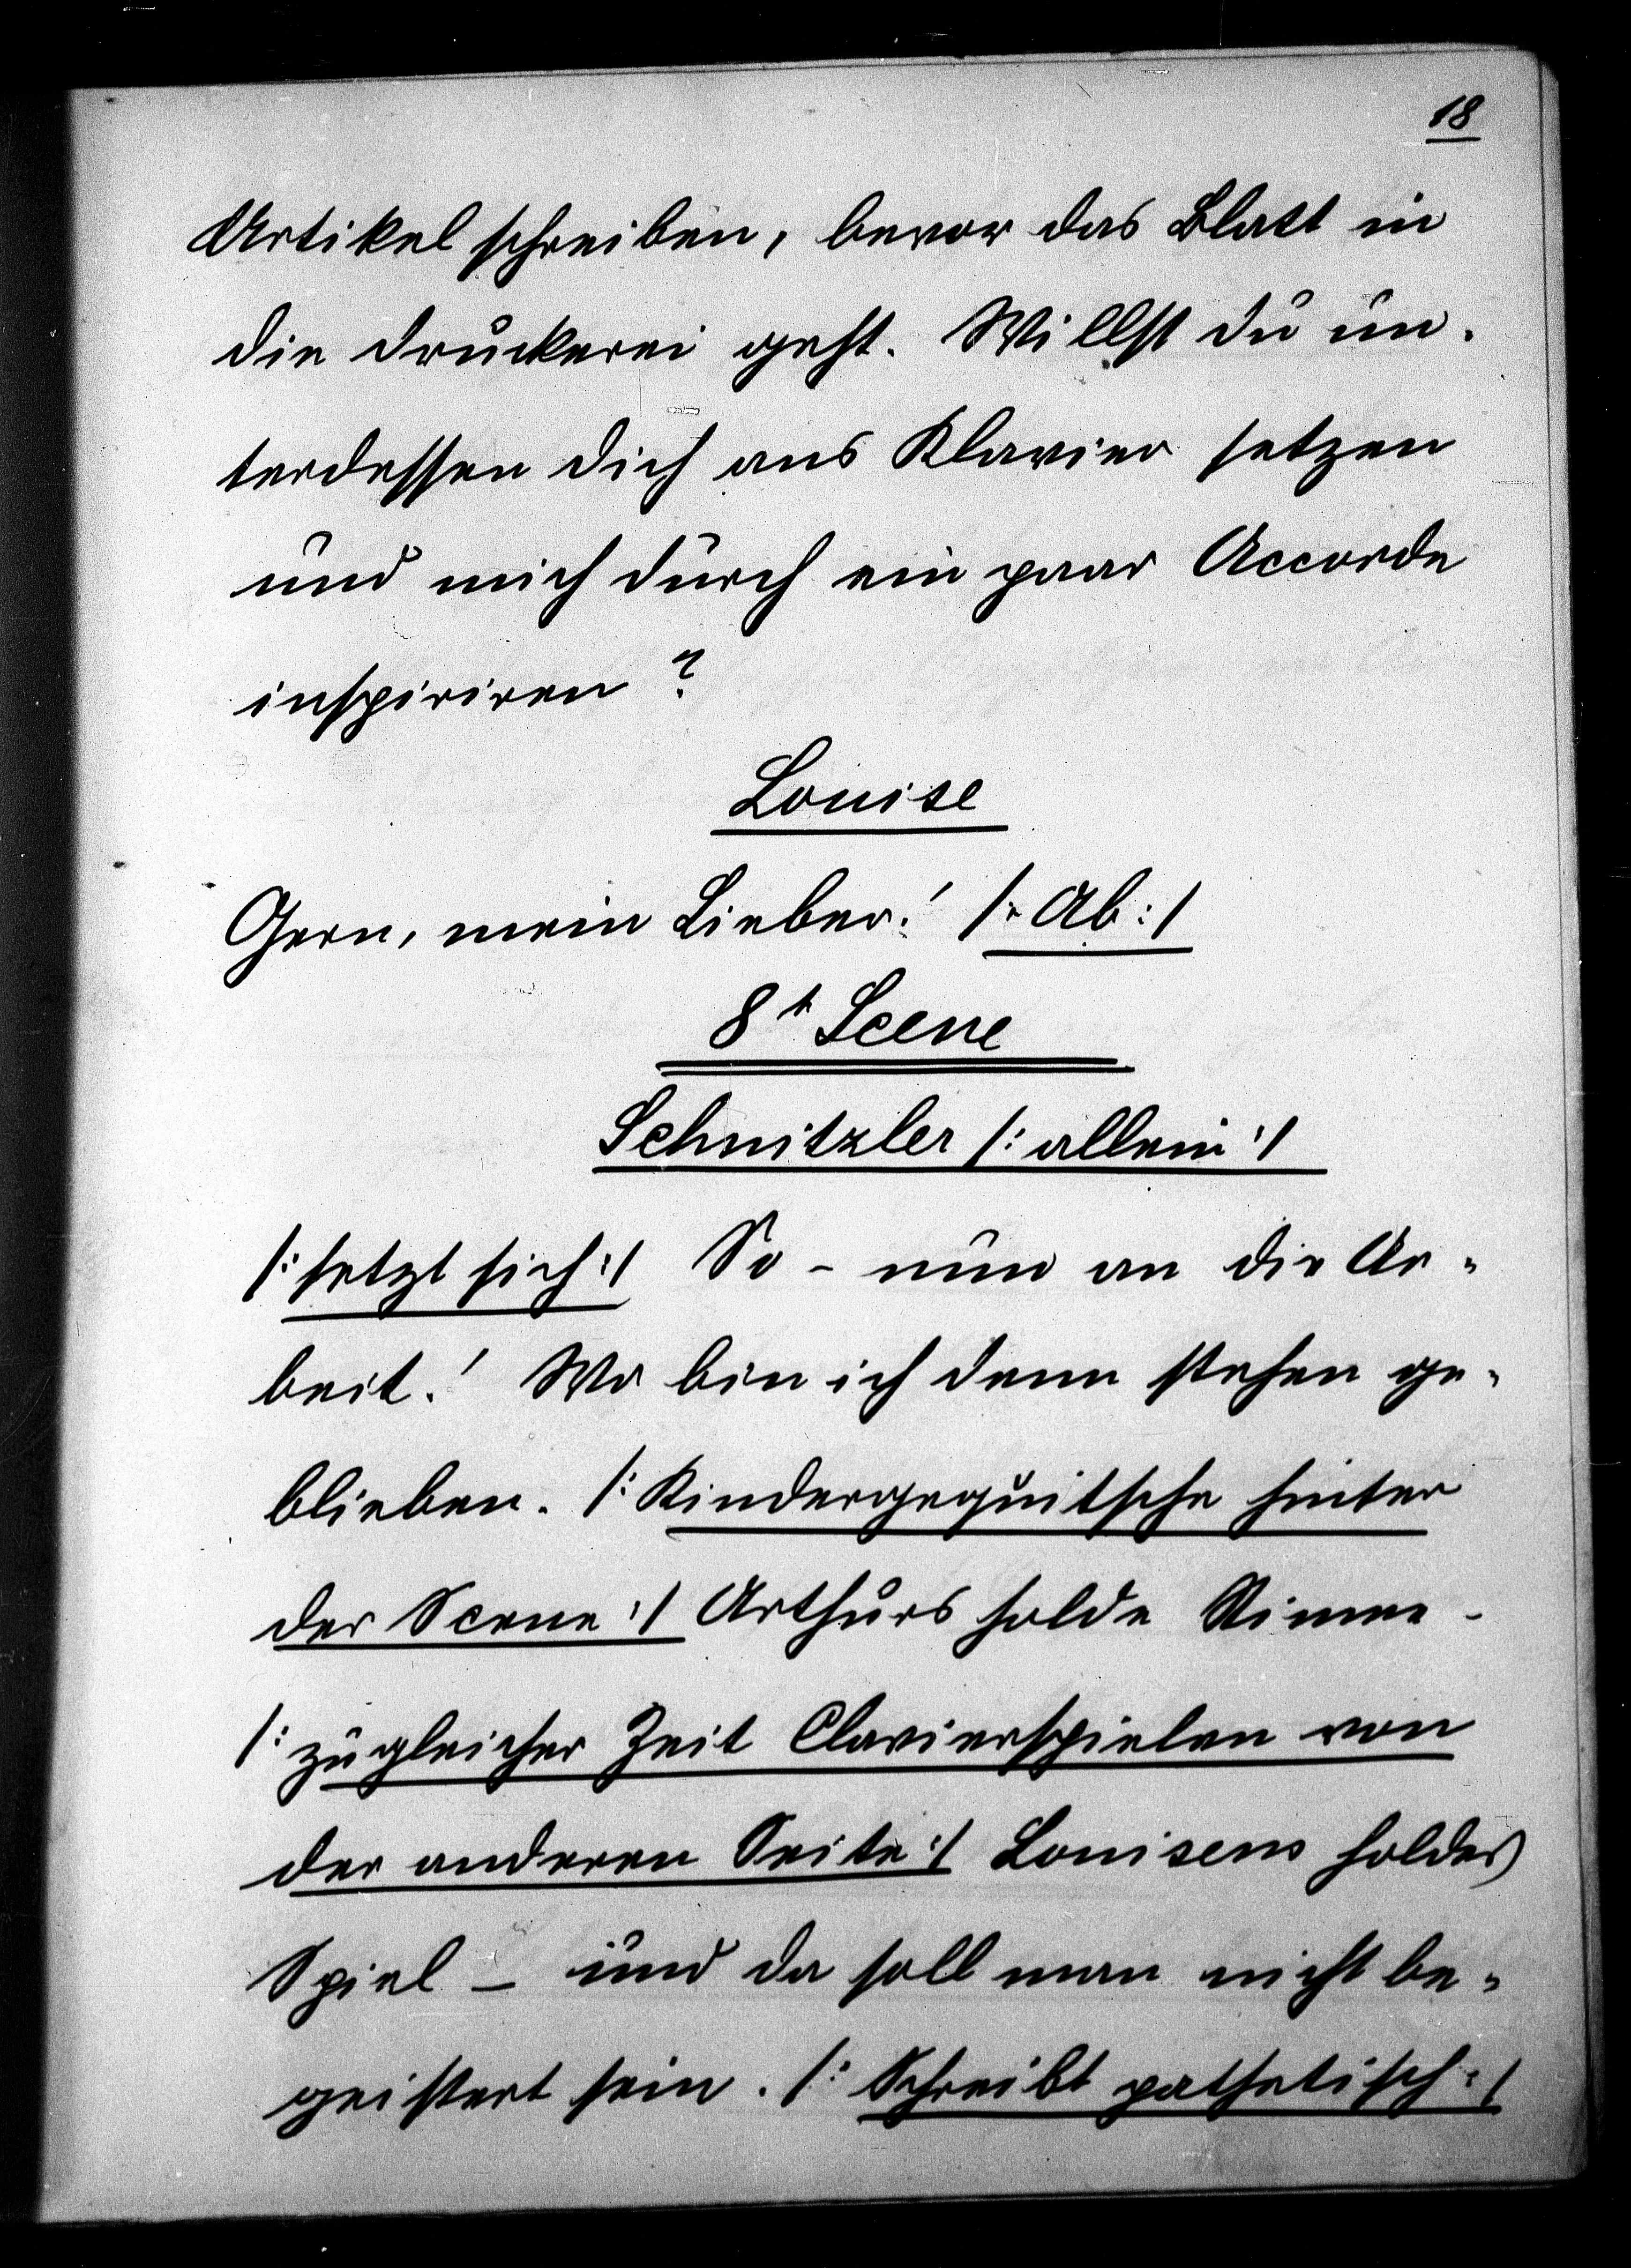 18
Artikel schreiben, bevor das Blatt in
die Druckerei geht. Willst du un-
terdessen dich ans Klavier setzen
und mich durch ein paar Accorde
inspiriren?
Louise
Gern, mein Lieber! /: Ab :/
8t Scene
Schnitzler /: allein :/
/: setzt sich :/ So – nun an die Ar-
beit! Wo bin ich denn stehen ge-
blieben. /: Kindergequitsche hinter
der Scene :/ Arthurs holde Stimme –
/: zugleicher Zeit Clavierspielen von
der anderen Seite :/ Louisens holdes
Spiel – und da soll man nicht be-
geistert sein. /: Schreibt pathetisch :/